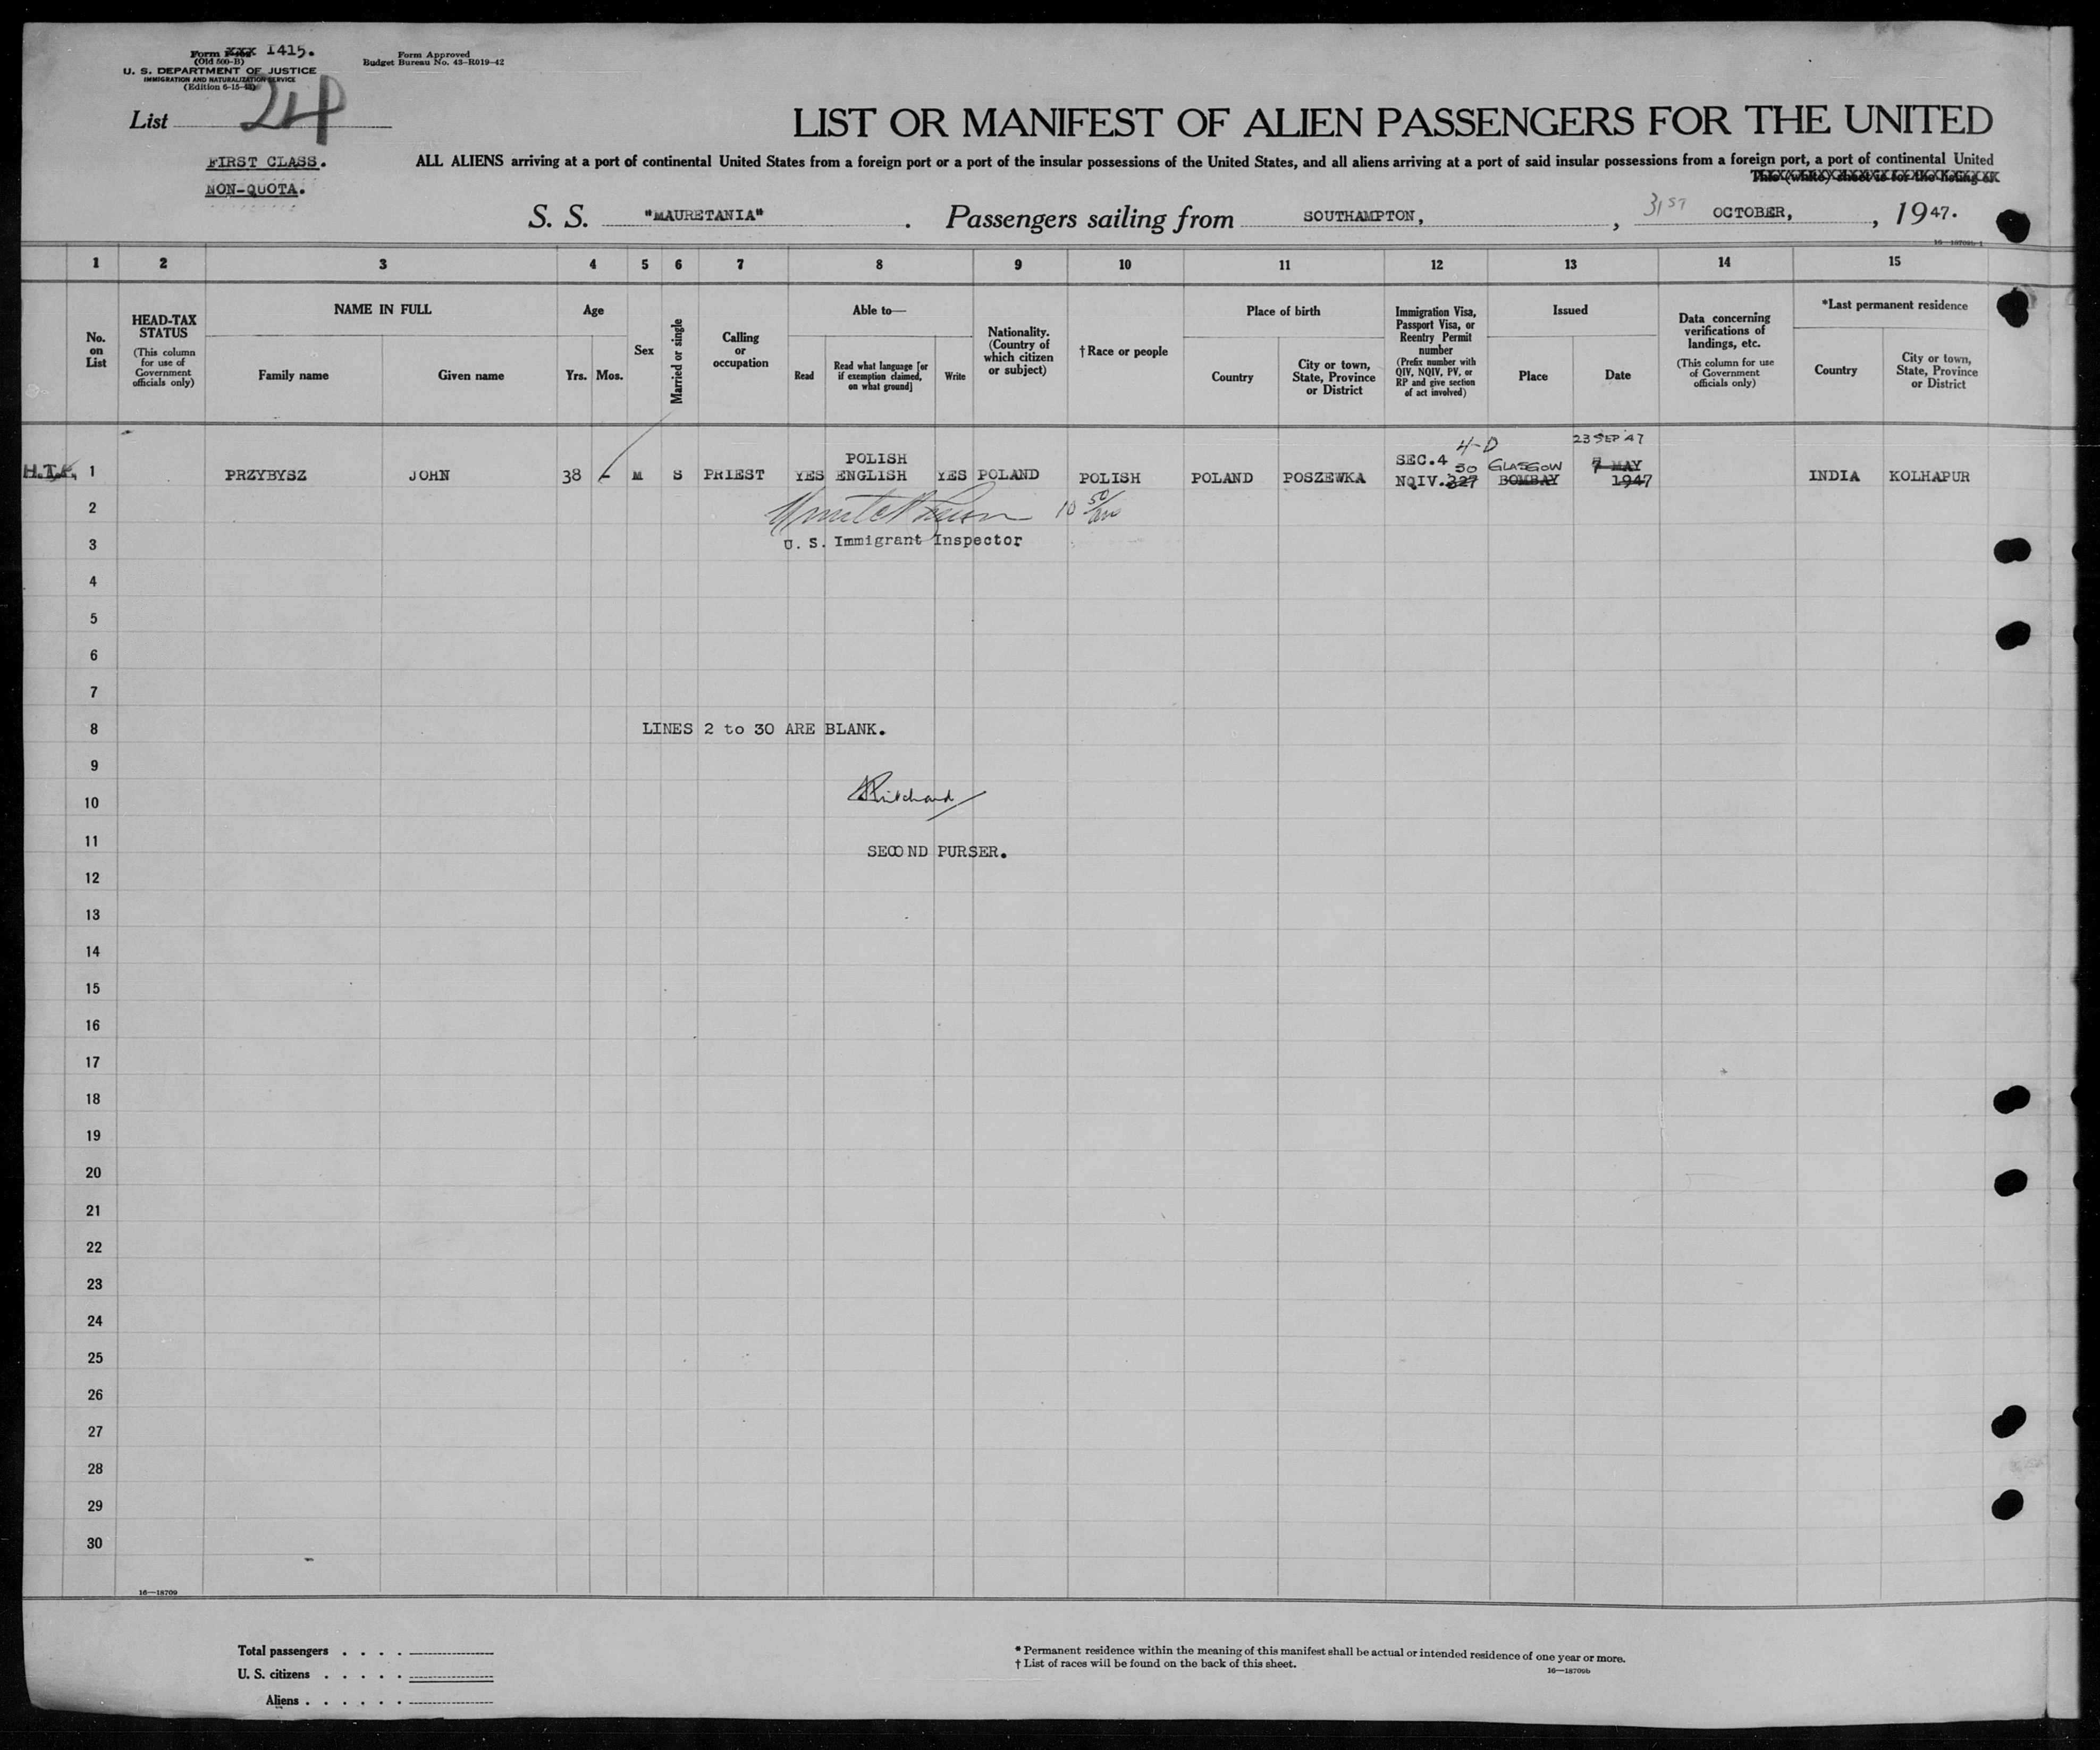 Form XXX I415.
(Old 500-B)
U. S. DEPARTMENT OF JUSTICE
IMMIGRATION AND NATURALIZATION SERVICE
(Edition 6-15-
Form Approved
Budget Bureau No. 43-R019-42
List 24
LIST OR MANIFEST OF ALIEN PASSENGERS FOR THE UNITED
FIRST CLASS.
NON-QUOTA.
ALL ALIENS arriving at a port of continental United States from a foreign port or a port of the insular possessions of the United States, and all aliens arriving at a port of said insular possessions from a foreign port, a port of continental United
This (white) sheet is for the listing of
S. S. "MAURETANIA" . Passengers sailing from SOUTHAMPTON, , 31ST OCTOBER, , 1947.
16—18709b-1
1 2 3 4 5 6 7 8 9 10 11 12 13 14 15
No. on List
HEAD-TAX STATUS
(This column for use of Government officials only)
NAME IN FULL
Family name
Given name
Age
Yrs. Mos.
Sex
Married or single
Calling or occupation
Able to—
Read
Read what language [or if exemption claimed, on what ground]
Write
Nationality. (Country of which citizen or subject)
†Race or people
Place of birth
Country
City or town, State, Province or District
Immigration Visa, Passport Visa, or Reentry Permit number
(Prefix number with QIV, NQIV, PV, or RP and give section of act involved)
Issued
Place
Date
Data concerning verifications of landings, etc.
(This column for use of Government officials only)
*Last permanent residence
Country
City or town, State, Province or District
4-D 23 SEP 47
POLISH SEC.4 50 GLASGOW 7 MAY
H.T.P. 1 PRZYBYSZ JOHN 38 - M S PRIEST YES ENGLISH YES POLAND POLISH POLAND POSZEWKA NQIV.327 BOMBAY 1947 INDIA KOLHAPUR
2 10 50/
3 U. S. Immigrant Inspector
4
5
6
7
8 LINES 2 to 30 ARE BLANK.
9
10 Pritchard
11 SECOND PURSER.
12
13
14
15
16
17
18
19
20
21
22
23
24
25
26
27
28
29
30
16—18709
Total passengers . . . .
U. S. citizens . . . . .
Aliens . . . . . .
* Permanent residence within the meaning of this manifest shall be actual or intended residence of one year or more.
† List of races will be found on the back of this sheet.
16—18709b